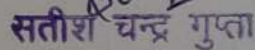 सतीश चन्द्र गुप्ता